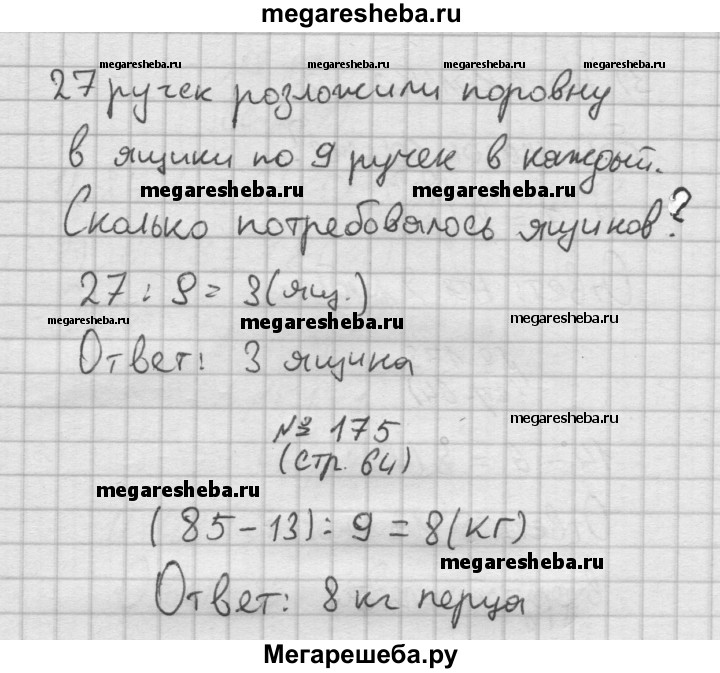 megaresheba.ru
megaresheba.ru megaresheba.ru megaresheba.ru
27 ручек розложили поровну
в ящики по 9 ручек в каждый.
megaresheba.ru megaresheba.ru
Сколько потребовалось ящиков?
27 : 9 = 3 (ящ.)
megaresheba.ru megaresheba.ru megaresheba.ru
Ответ: 3 ящика
megaresheba.ru
№ 175
(стр. 64)
megaresheba.ru
(85 - 13) : 9 = 8 (кг)
megaresheba.ru
Ответ: 8 кг перца
Мегарешеба.ру